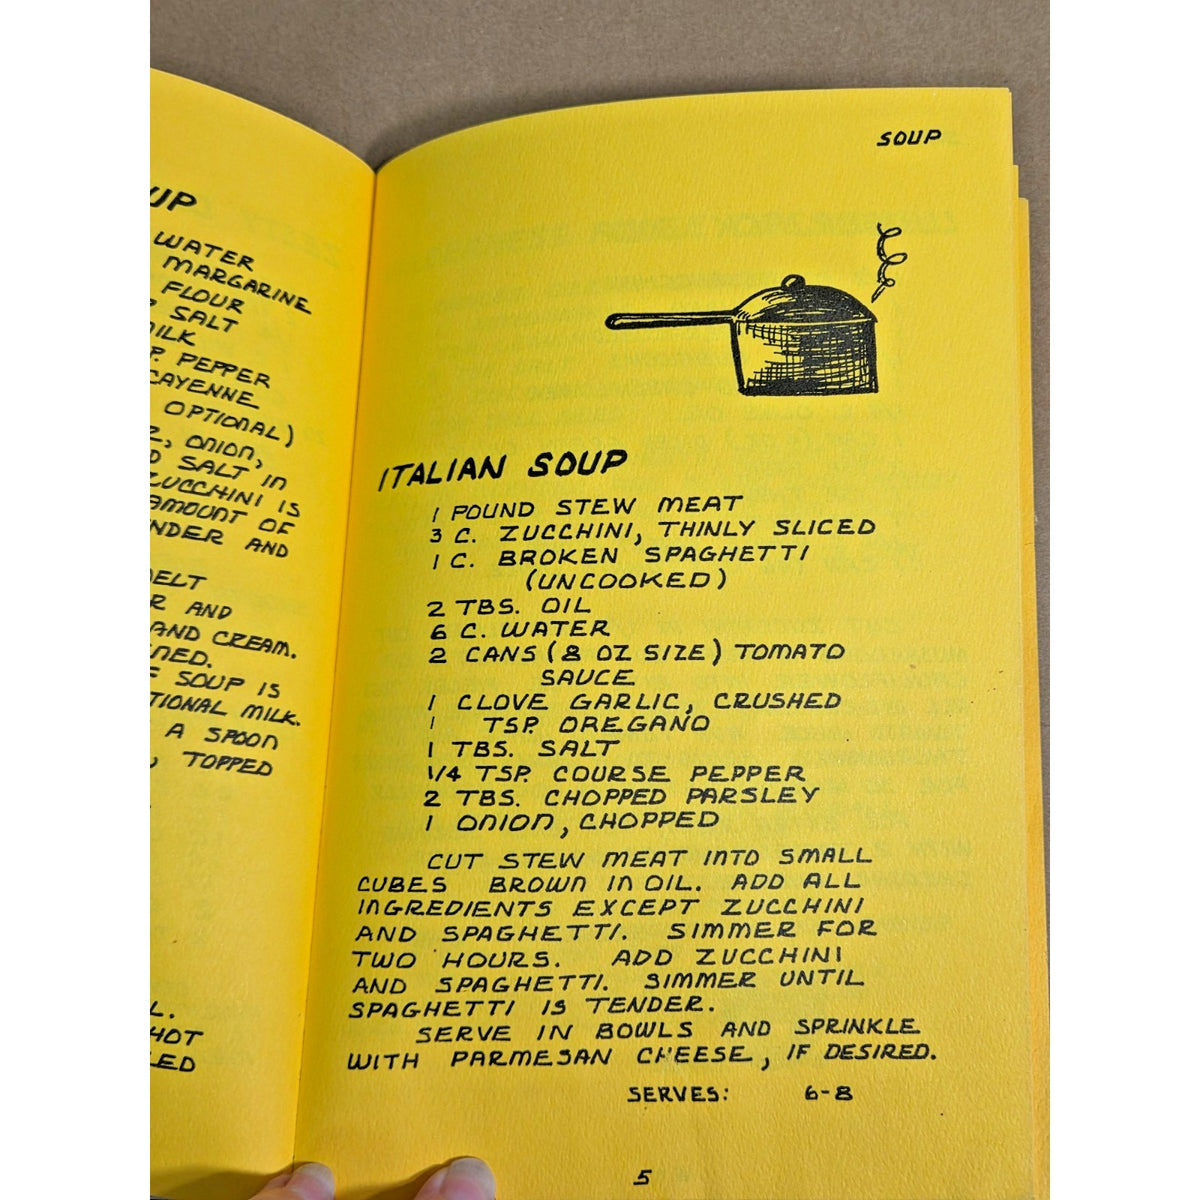 UP
WATER
MARGARINE
FLOUR
SALT
MILK
PEPPER
CAYENNE
OPTIONAL)
, ONION,
SALT IN
ZUCCHINI IS
AMOUNT OF
AND
MELT
AND
AND CREAM.
SOUP IS
MILK.
A SPOON
, TOPPED
HOT
SOUP
ITALIAN SOUP
1 POUND STEW MEAT
3 C. ZUCCHINI, THINLY SLICED
1 C. BROKEN SPAGHETTI
(UNCOOKED)
2 TBS. OIL
6 C. WATER
2 CANS (8 OZ SIZE) TOMATO
SAUCE
1 CLOVE GARLIC, CRUSHED
1 TSP. OREGANO
1 TBS. SALT
1/4 TSP. COURSE PEPPER
2 TBS. CHOPPED PARSLEY
1 ONION, CHOPPED
CUT STEW MEAT INTO SMALL
CUBES BROWN IN OIL. ADD ALL
INGREDIENTS EXCEPT ZUCCHINI
AND SPAGHETTI. SIMMER FOR
TWO HOURS. ADD ZUCCHINI
AND SPAGHETTI. SIMMER UNTIL
SPAGHETTI IS TENDER.
SERVE IN BOWLS AND SPRINKLE
WITH PARMESAN CHEESE, IF DESIRED.
SERVES: 6-8
5